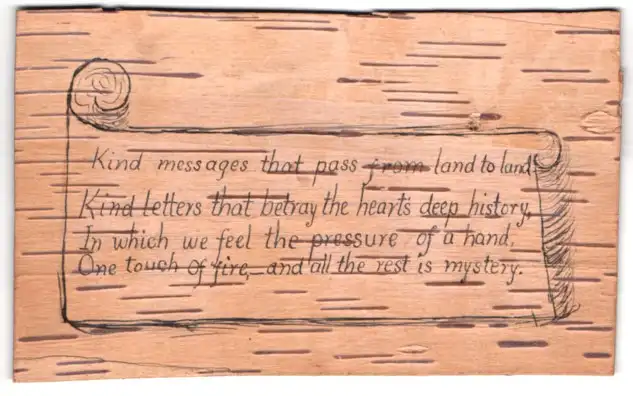 Kind messages that pass from land to land:
Kind letters that betray the heart's deep history,
In which we feel the pressure of a hand,
One touch of fire,—and all the rest is mystery.